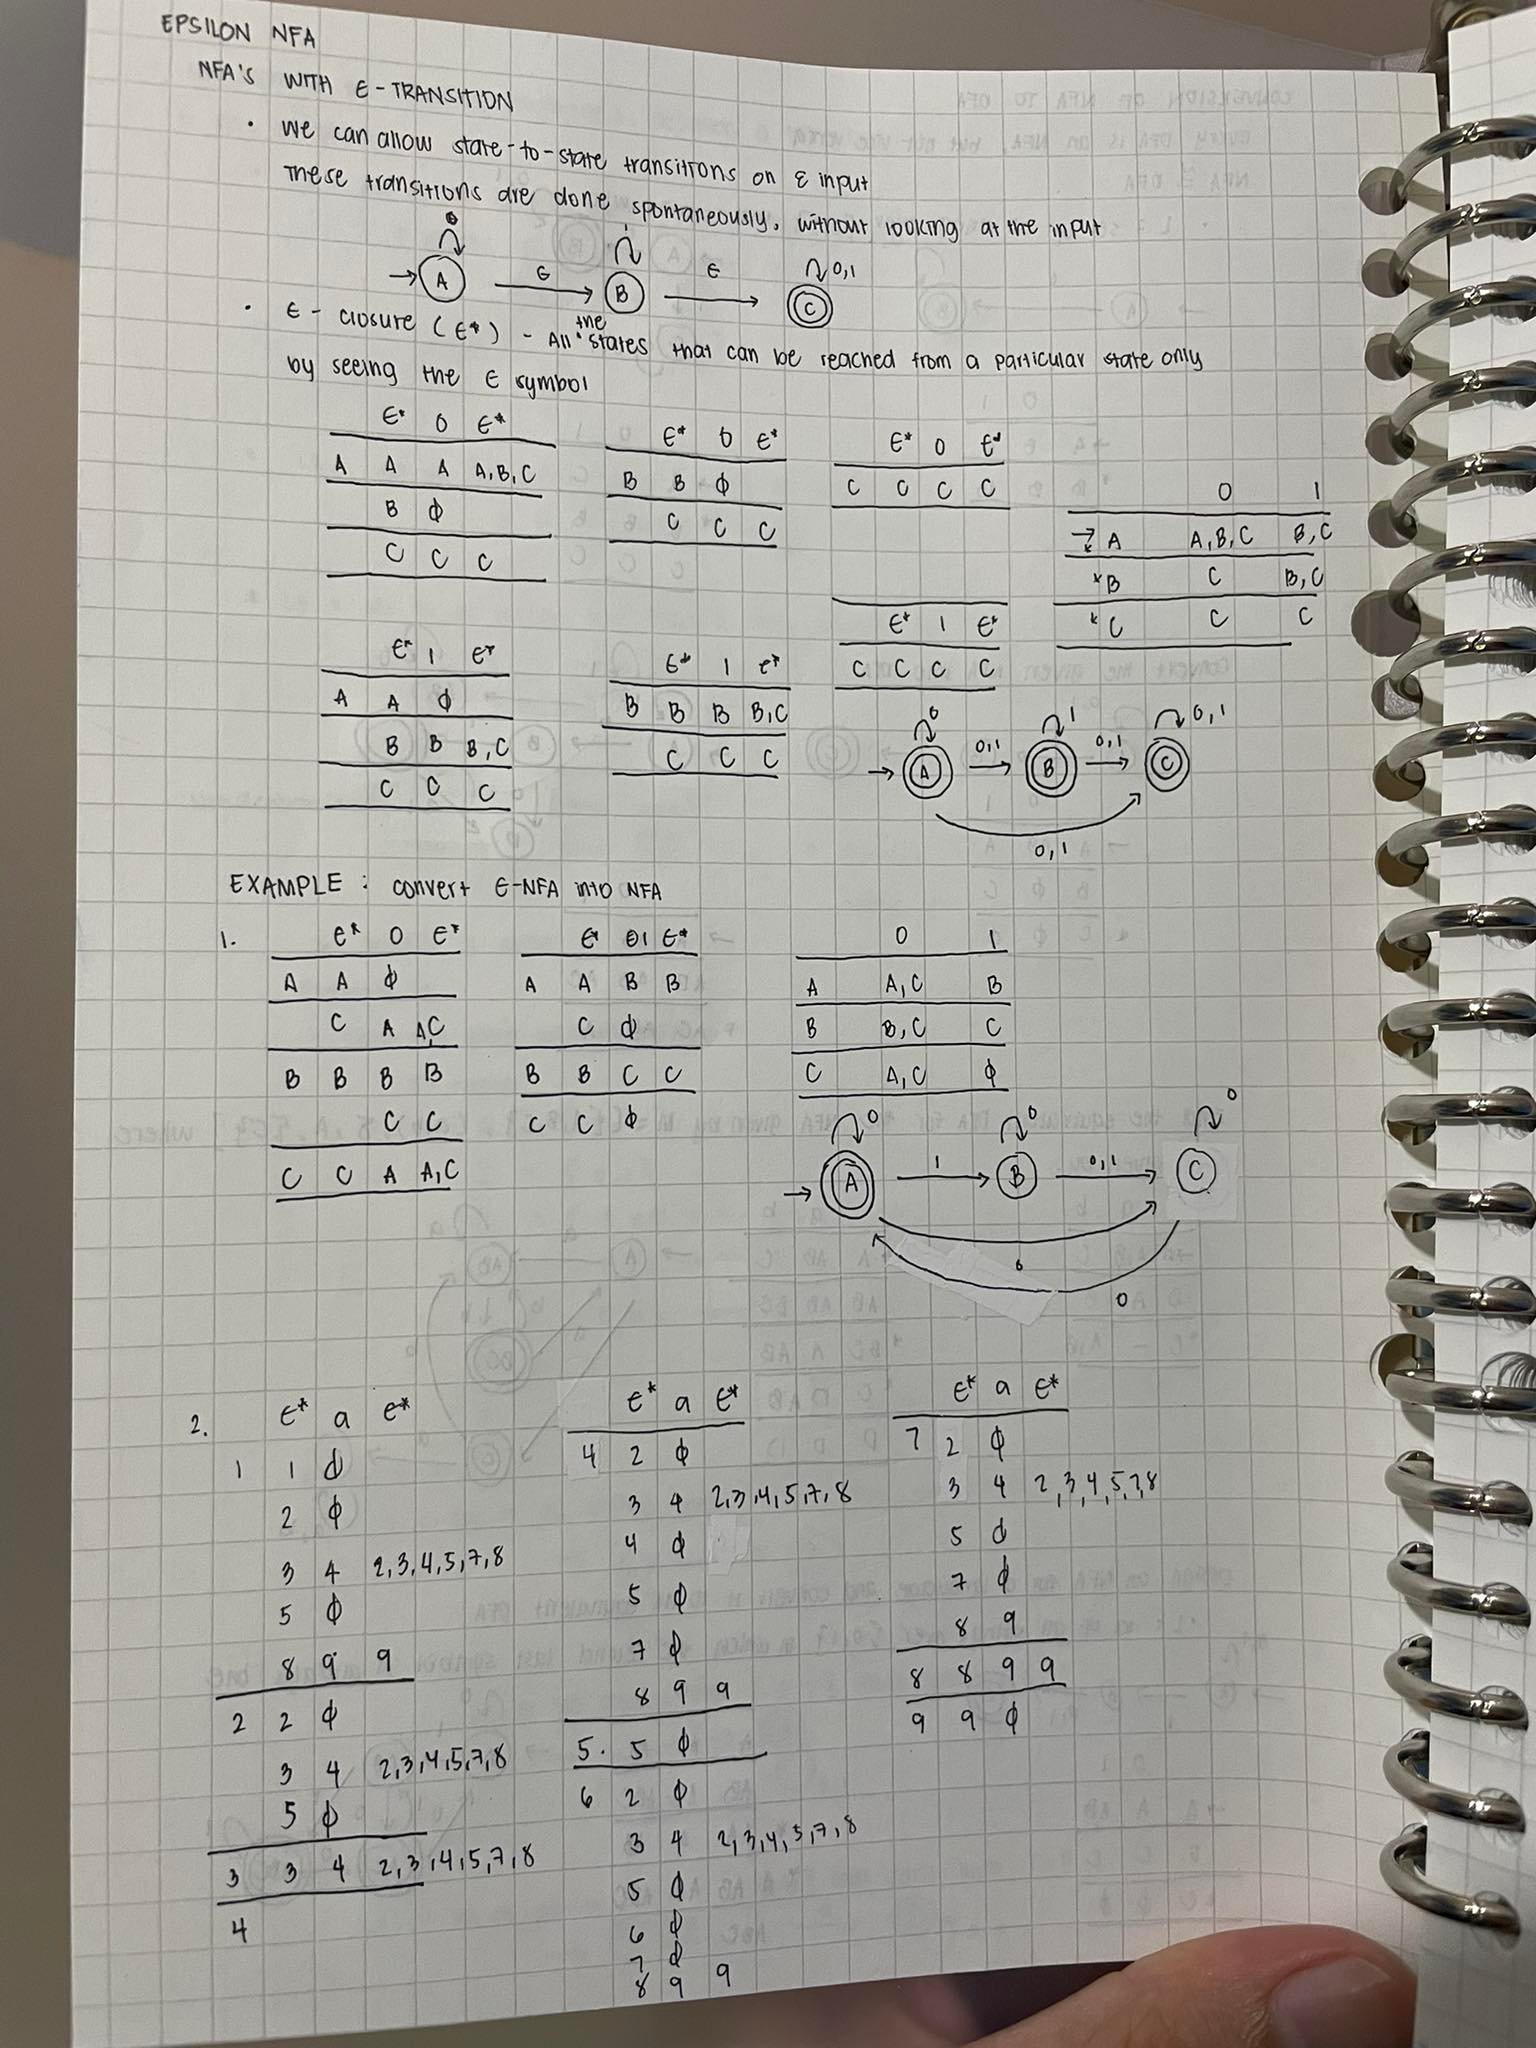 EPSILON NFA
NFA'S WITH ε-TRANSITION
• We can allow state-to-state transitions on ε input
These transitions are done spontaneously, without looking at the input
0 1 0,1
→ A ε B ε C
• ε-closure (ε*) - All the states that can be reached from a particular state only
by seeing the ε symbol
ε* 0 ε*
A A A A,B,C
B ϕ
C C C
ε* 0 ε*
B B ϕ
C C C
ε* 0 ε*
C C C C
0 1
→* A A,B,C B,C
*B C B,C
*C C C
ε* 1 ε*
A A ϕ
B B B,C
C C C
ε* 1 ε*
B B B B,C
C C C
ε* 1 ε*
C C C C
0 1 0,1
→ A 0,1 B 0,1 C
0,1
EXAMPLE: convert ε-NFA into NFA
1. ε* 0 ε*
A A ϕ
C A A,C
B B B B
C C
C C A A,C
ε* 1 ε*
A A B B
C ϕ
B B C C
C C ϕ
0 1
A A,C B
B B,C C
C A,C ϕ
0 0 0
→ A 1 B 0,1 C
0
0
2. ε* a ε*
1 1 ϕ
2 ϕ
3 4 2,3,4,5,7,8
5 ϕ
8 9 9
2 2 ϕ
3 4 2,3,4,5,7,8
5 ϕ
3 3 4 2,3,4,5,7,8
4
ε* a ε*
4 2 ϕ
3 4 2,3,4,5,7,8
4 ϕ
5 ϕ
7 ϕ
8 9 9
5. 5 ϕ
6 2 ϕ
3 4 2,3,4,5,7,8
5 ϕ
6 ϕ
7 ϕ
8 9 9
ε* a ε*
7 2 ϕ
3 4 2,3,4,5,7,8
5 ϕ
7 ϕ
8 9
8 8 9 9
9 9 ϕ